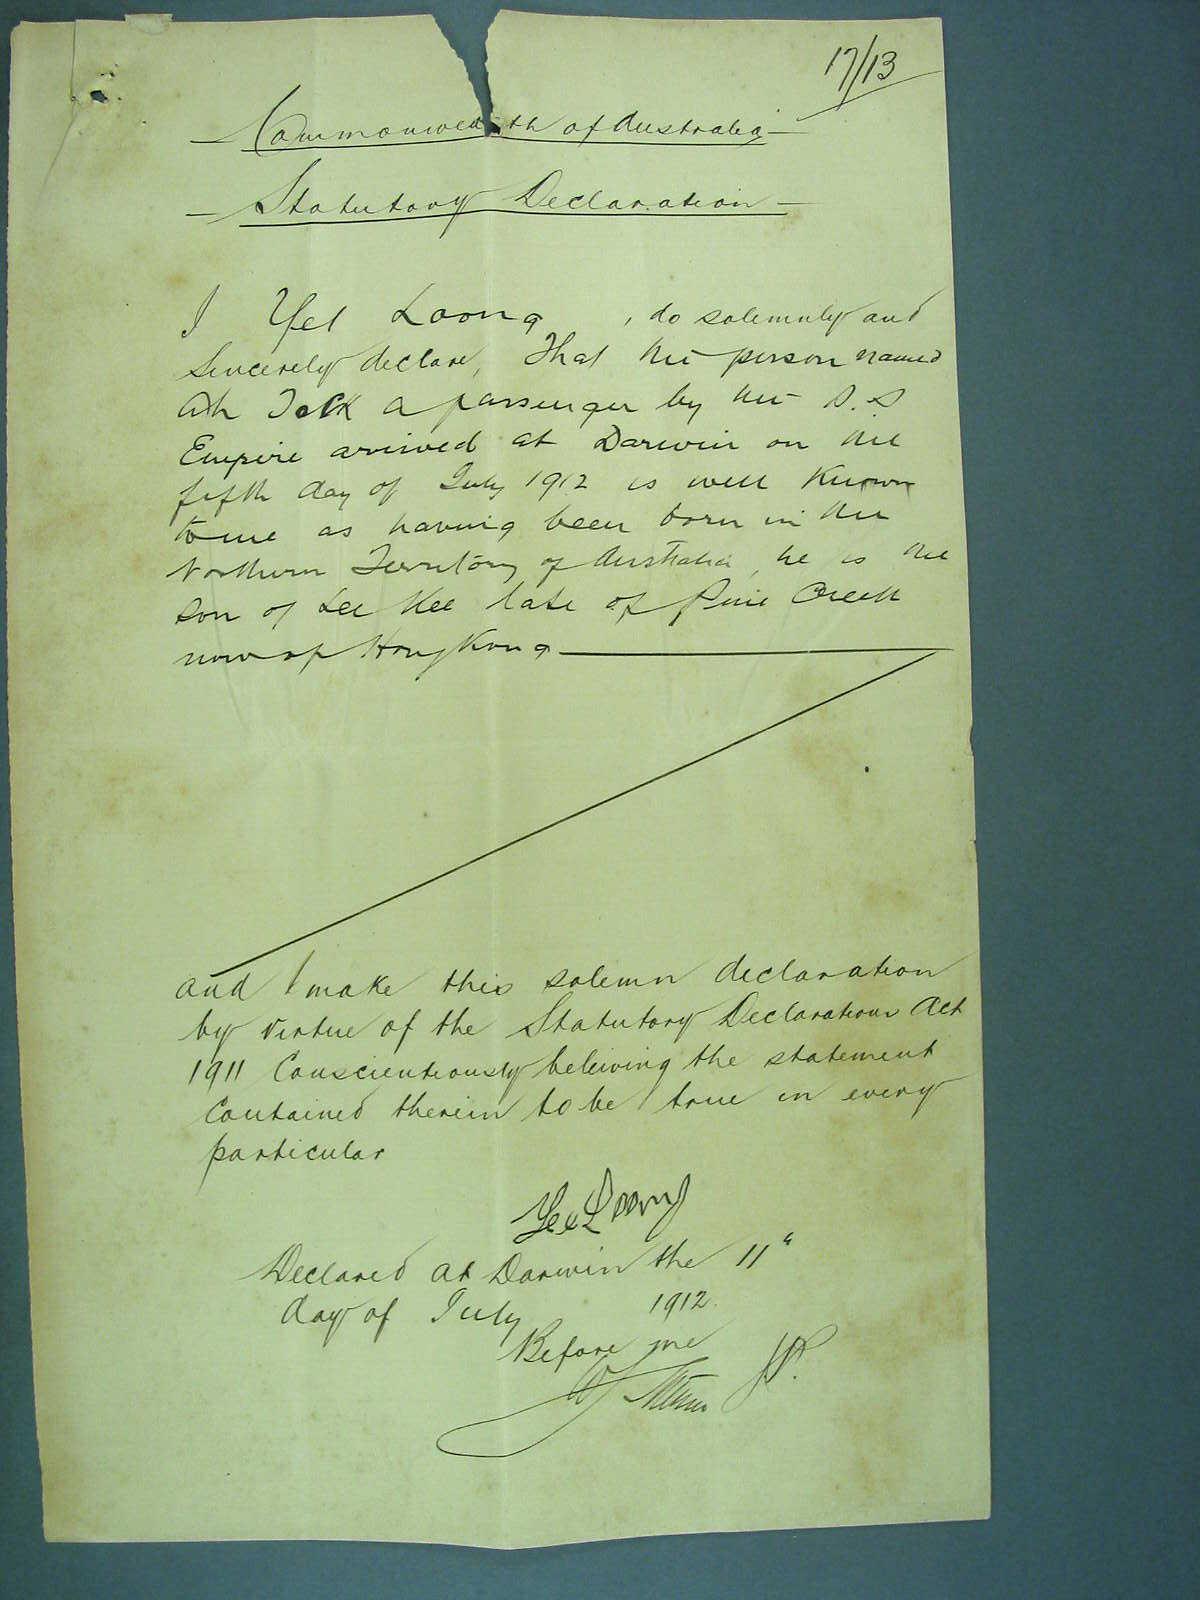 17/13
Commonwealth of Australia
Statutory Declaration
I Yet Loong, do solemnly and
sincerely declare, That the person named
Ah Jack a passenger by the S.S
Empire arrived at Darwin on the
fifth day of July 1912 is well known
to me as having been born in the
Northern Territory of Australia he is the
son of Lee Kee late of Pine Creek
now of Hong Kong
and I make this solemn declaration
by virtue of the Statutory Declarations Act
1911 Conscientiously beleiving the statement
contained therein to be true in every
particular
Yet Loong
Declared at Darwin the 11"
day of July 1912.
Before me
JP.